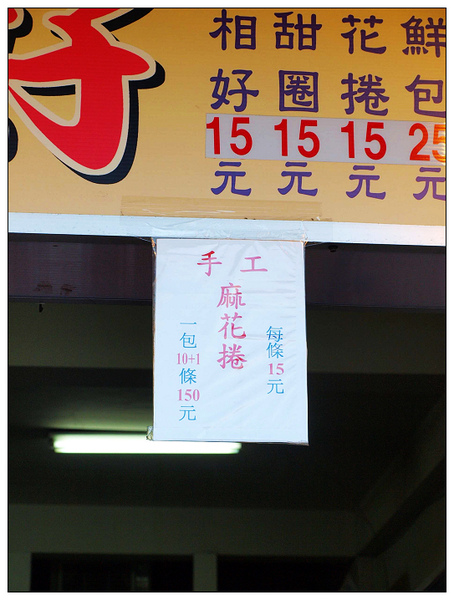 子
相好
15
元
甜圈
15
元
花捲
15
元
鮮包
25
元
手工
麻花捲
每條15元
一包10+1條150元